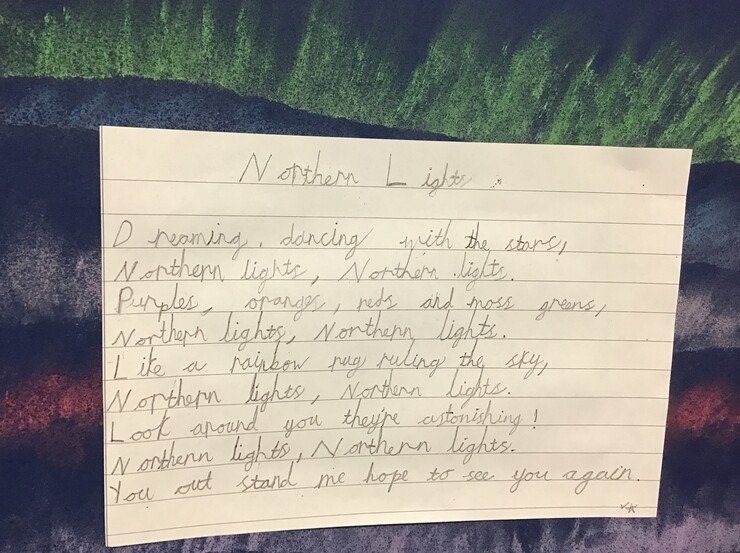 Northern Lights
Dreaming, dancing with the stars,
Northern lights, Northern lights.
Purples, oranges, reds and moss greens,
Northern lights, Northern lights.
Like a rainbow rug ruling the sky,
Northern lights, Northern lights.
Look around you they're astonishing!
Northern lights, Northern lights.
You out stand me hope to see you again.